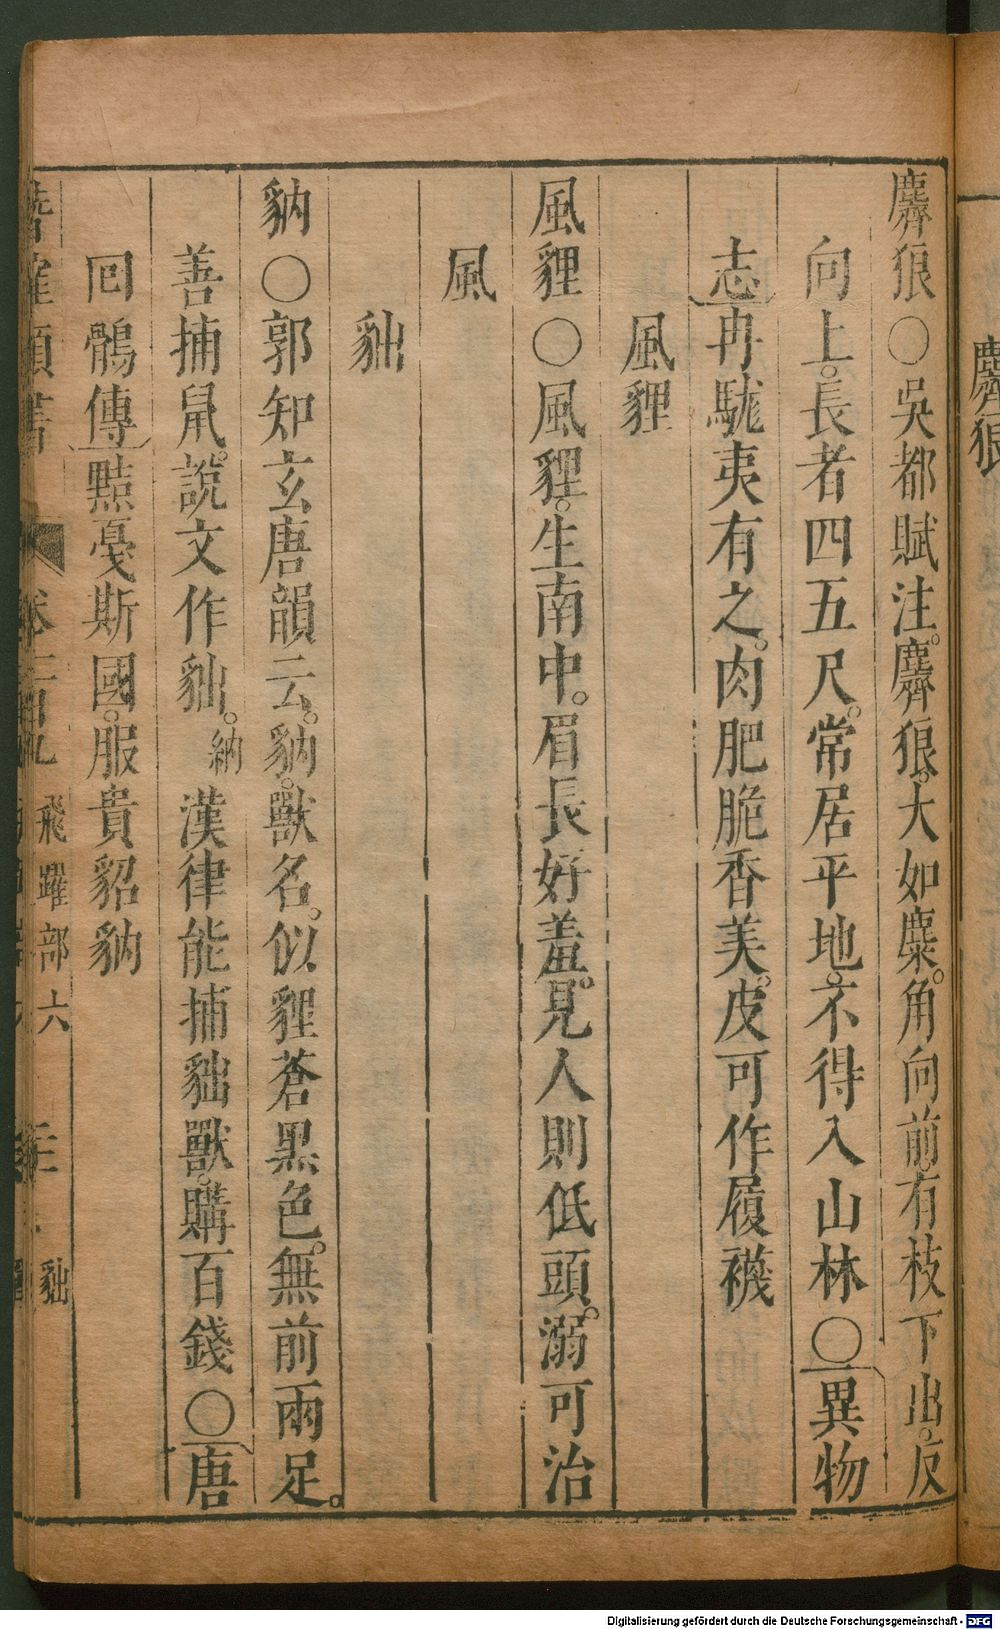 麡狼
麡狼〇吳都賦注。麡狼。大如麋。角向前。有枝下出。反
向上。長者四五尺。常居平地。不得入山林〇異物
志冉駹夷有之。肉肥脆香美。皮可作履襪
風貍
風貍〇風貍。生南中。眉長好羞。見人則低頭。溺可治
風
貀
豽〇郭知玄唐韻云。豽。獸名。似貍蒼黑色。無前兩足。
善捕鼠。說文作貀。納漢律能捕貀獸。購百錢〇唐
囘鶻傳黠戛斯國。服貴貂豽
潛確類書 卷 飛躍部六 貀
Digitalisierung gefördert durch die Deutsche Forschungsgemeinschaft - DFG